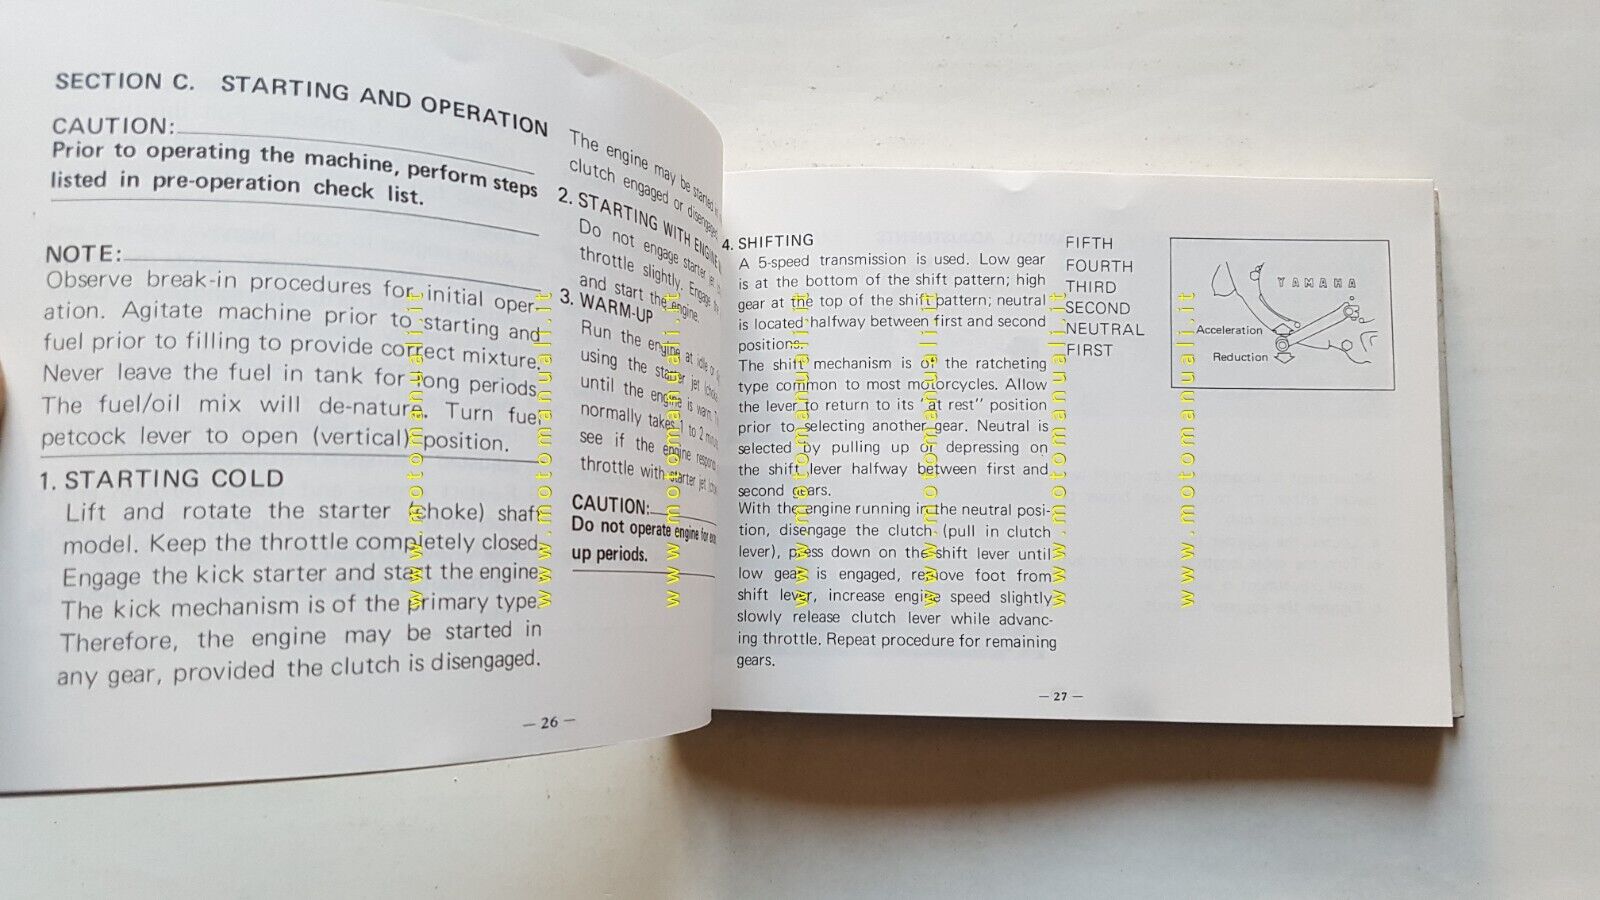 SECTION C. STARTING AND OPERATION
CAUTION:
Prior to operating the machine, perform steps
listed in pre-operation check list.
NOTE:
Observe break-in procedures for initial oper-
ation. Agitate machine prior to starting and
fuel prior to filling to provide correct mixture.
Never leave the fuel in tank for long periods
The fuel/oil mix will de-nature. Turn fuel
petcock lever to open (vertical) position.
1. STARTING COLD
Lift and rotate the starter (choke) shaft
model. Keep the throttle completely closed
Engage the kick starter and start the engine
The kick mechanism is of the primary type.
Therefore, the engine may be started in
any gear, provided the clutch is disengaged.
— 26 —
The engine may be started in
clutch engaged or disengaged.
2. STARTING WITH ENGINE
Do not engage starter jet
throttle slightly. Engage
and start the engine.
3. WARM-UP
Run the engine at idle or
using the starter jet
until the engine is warm.
normally takes 1 to 2
see if the engine
throttle with starter jet
CAUTION:
Do not operate engine for
up periods.
4. SHIFTING
A 5-speed transmission is used. Low gear
is at the bottom of the shift pattern; high
gear at the top of the shift pattern; neutral
is located halfway between first and second
positions.
The shift mechanism is of the ratcheting
type common to most motorcycles. Allow
the lever to return to its "at rest" position
prior to selecting another gear. Neutral is
selected by pulling up or depressing on
the shift lever halfway between first and
second gears.
With the engine running in the neutral posi-
tion, disengage the clutch (pull in clutch
lever), press down on the shift lever until
low gear is engaged, remove foot from
shift lever, increase engine speed slightly
slowly release clutch lever while advanc-
ing throttle. Repeat procedure for remaining
gears.
FIFTH
FOURTH
THIRD
SECOND
NEUTRAL
FIRST
YAMAHA
Acceleration
Reduction
— 27 —
www.motomanuali.it
www.motomanuali.it
www.motomanuali.it
www.motomanuali.it
www.motomanuali.it
www.motomanuali.it
www.motomanuali.it